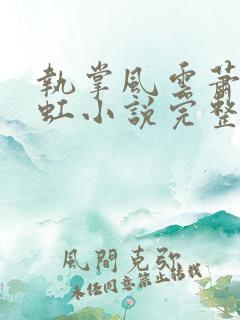 執掌風雲蕭
虹小說完整
風間克弥
未经同意禁止转载